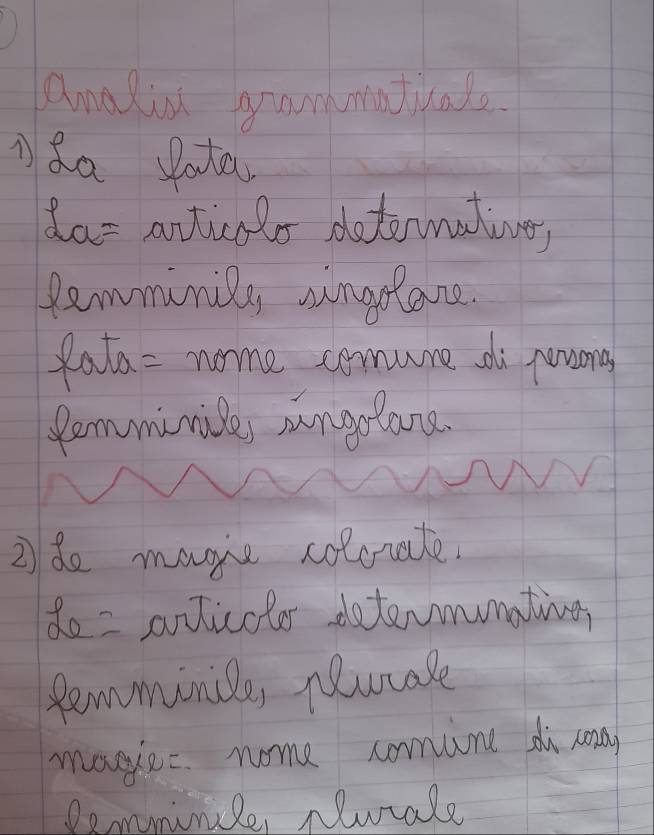 Analisi grammaticale.
1) La fata.
La= articolo deternativo,
femminile, singolare.
fata= nome comune di persona,
femminile, singolare.
2) Le magie colorate.
Le= articolo determinativo,
femminile, plurale
magie= nome comune di cosa,
femminile, plurale